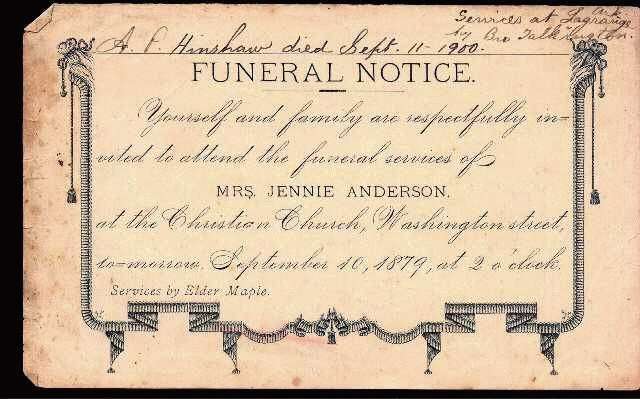 Services at Lagrange Ark
A. P. Hinshaw died Sept. 11- 1900. by Bro Talkington.
FUNERAL NOTICE.
Yourself and family are respectfully in=
vited to attend the funeral services of
MRS. JENNIE ANDERSON,
at the Christian Church, Washington street,
to=morrow, September 10, 1879, at 2 o'clock.
Services by Elder Maple.